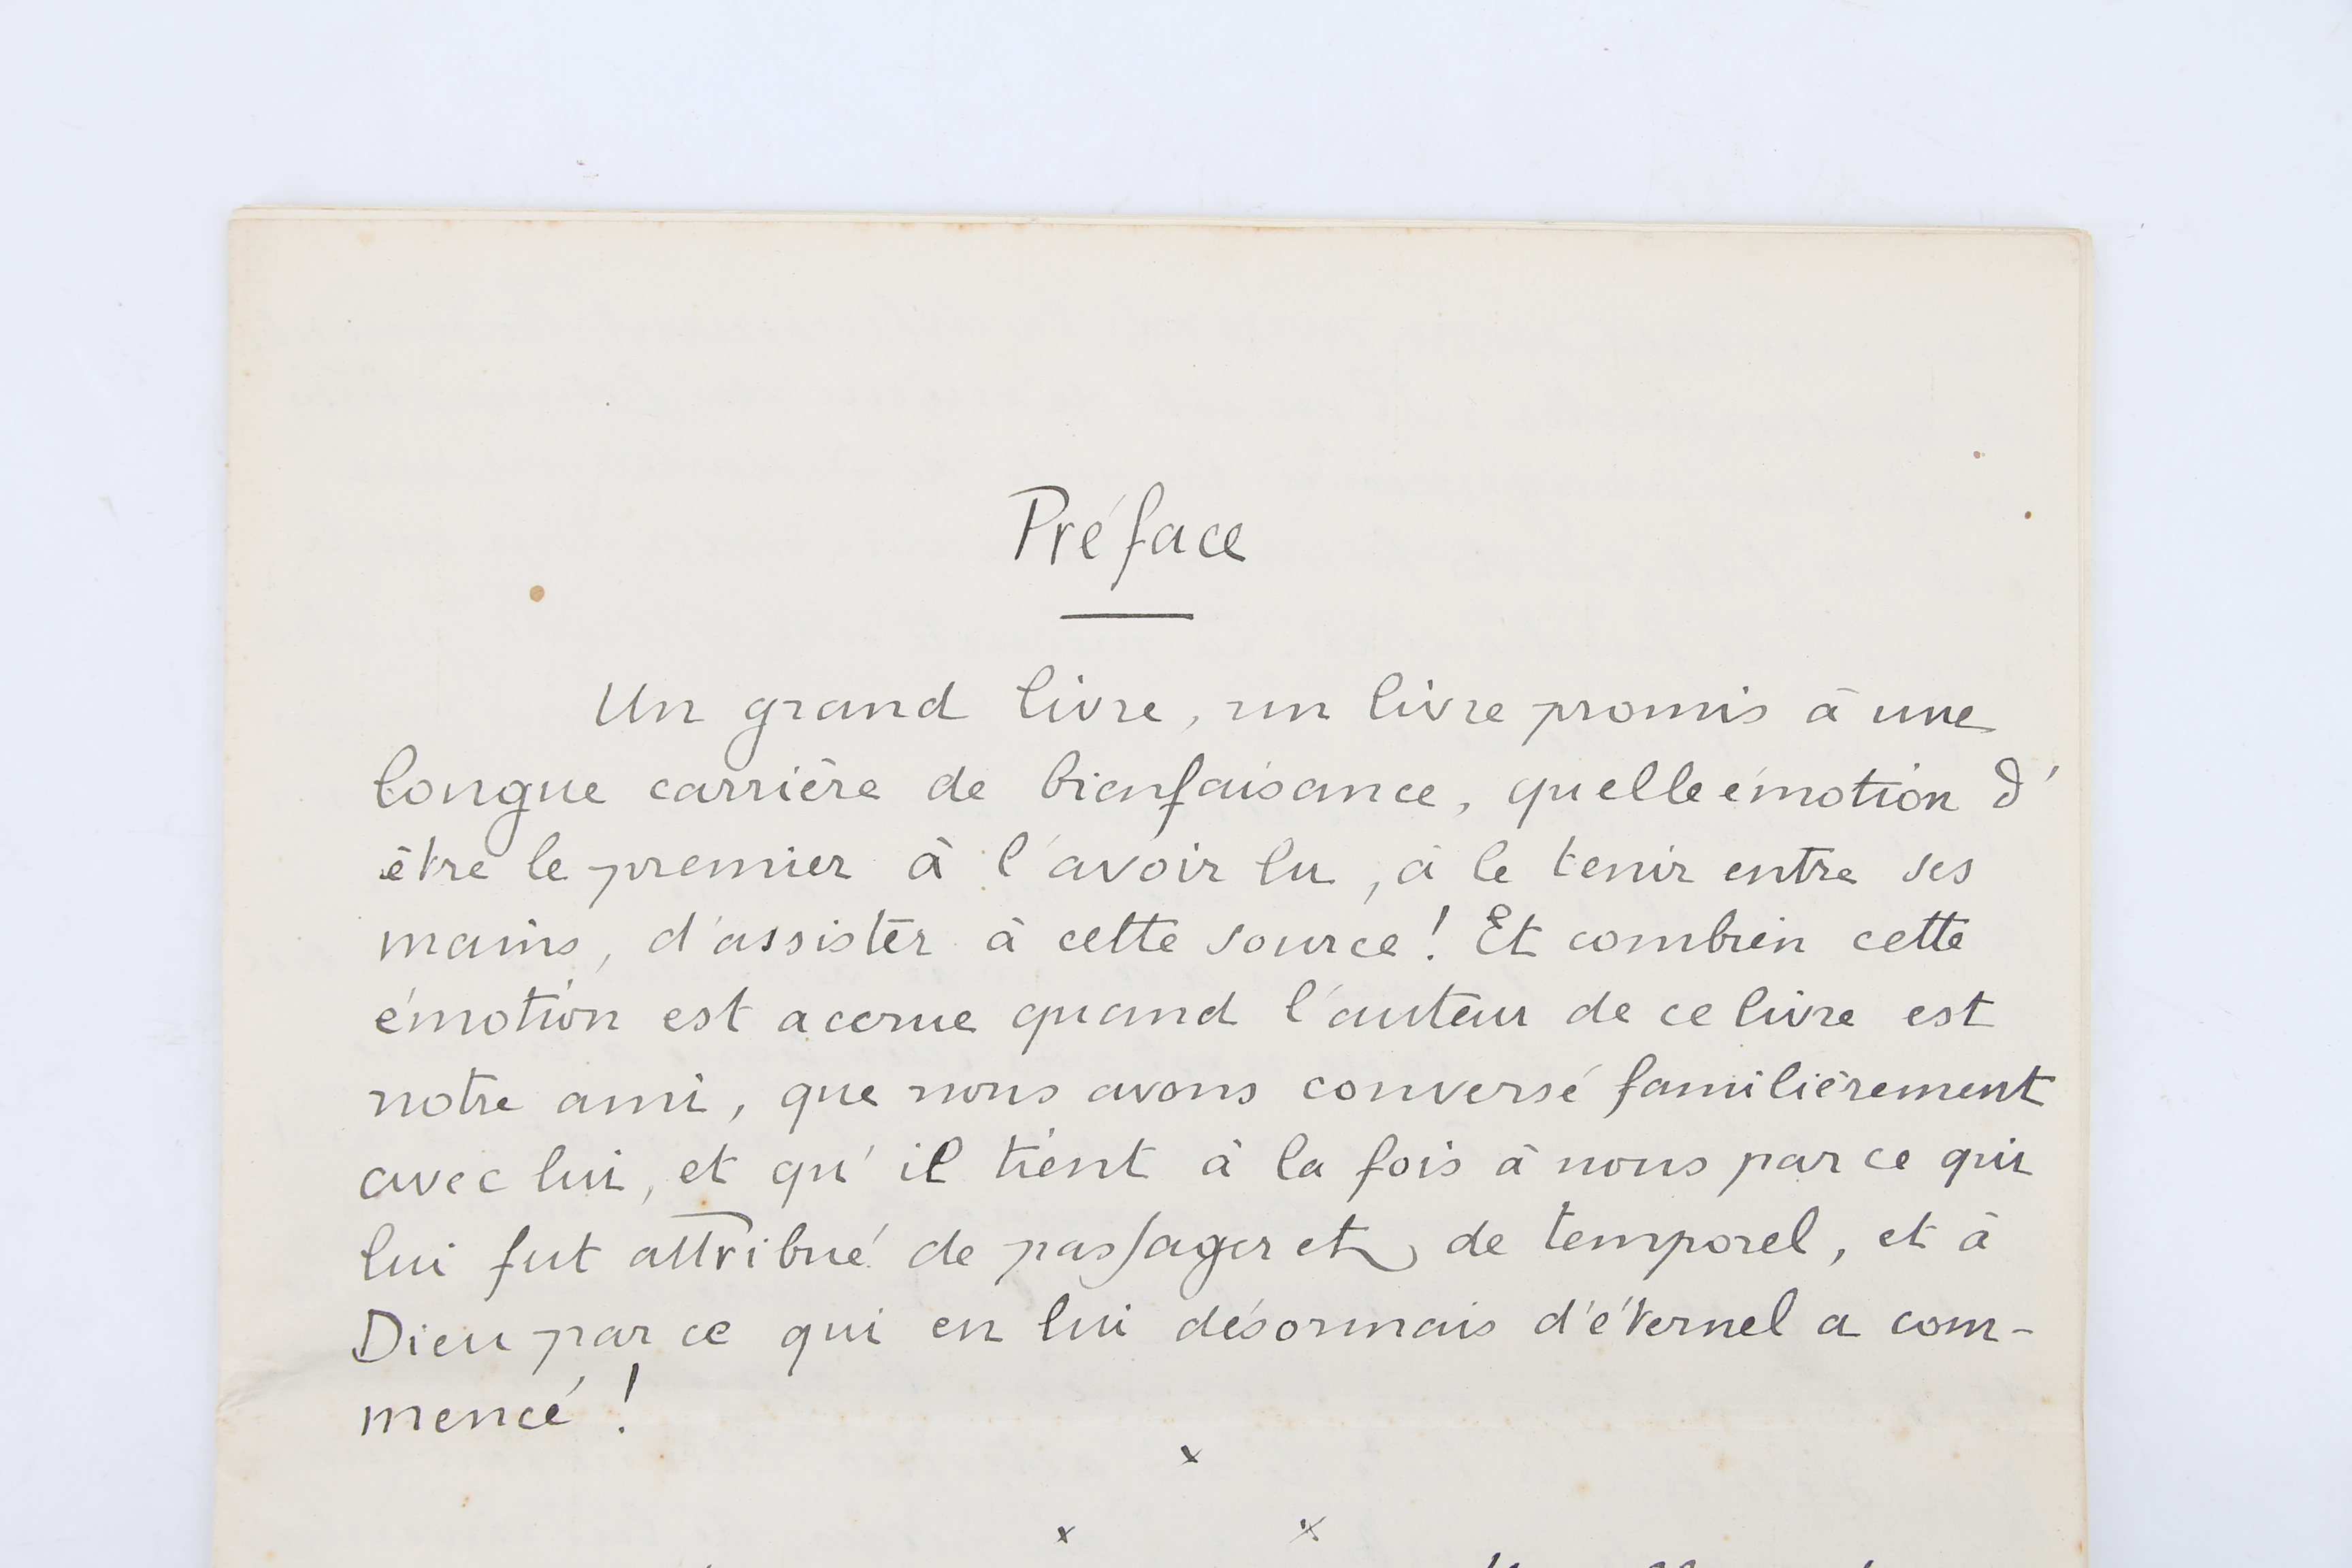 Préface
Un grand livre, un livre promis à une
longue carrière de bienfaisance, quelle émotion d'
être le premier à l'avoir lu, à le tenir entre ses
mains, d'assister à cette source ! Et combien cette
émotion est accrue quand l'auteur de ce livre est
notre ami, que nous avons conversé familièrement
avec lui, et qu'il tient à la fois à nous par ce qui
lui fut attribué de passager et de temporel, et à
Dieu par ce qui en lui désormais d'éternel a com-
mencé !
x
x x